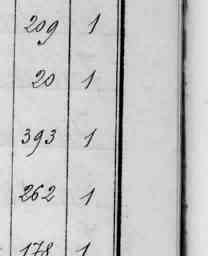 209 1
20 1
393 1
262 1
178 1